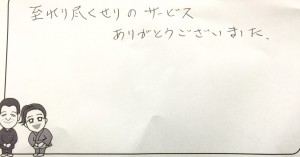 至れり尽くせりの サービス
ありがとうございました.